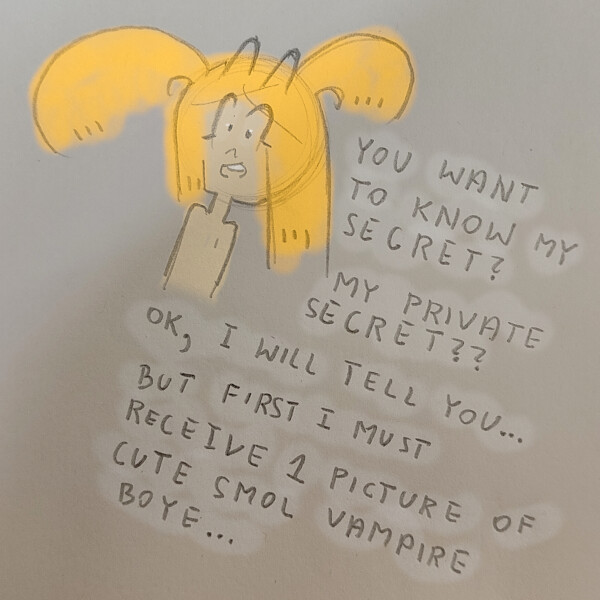 YOU WANT
TO KNOW MY
SECRET?
MY PRIVATE
SECRET??
OK, I WILL TELL YOU...
BUT FIRST I MUST
RECEIVE 1 PICTURE OF
CUTE SMOL VAMPIRE
BOYE...